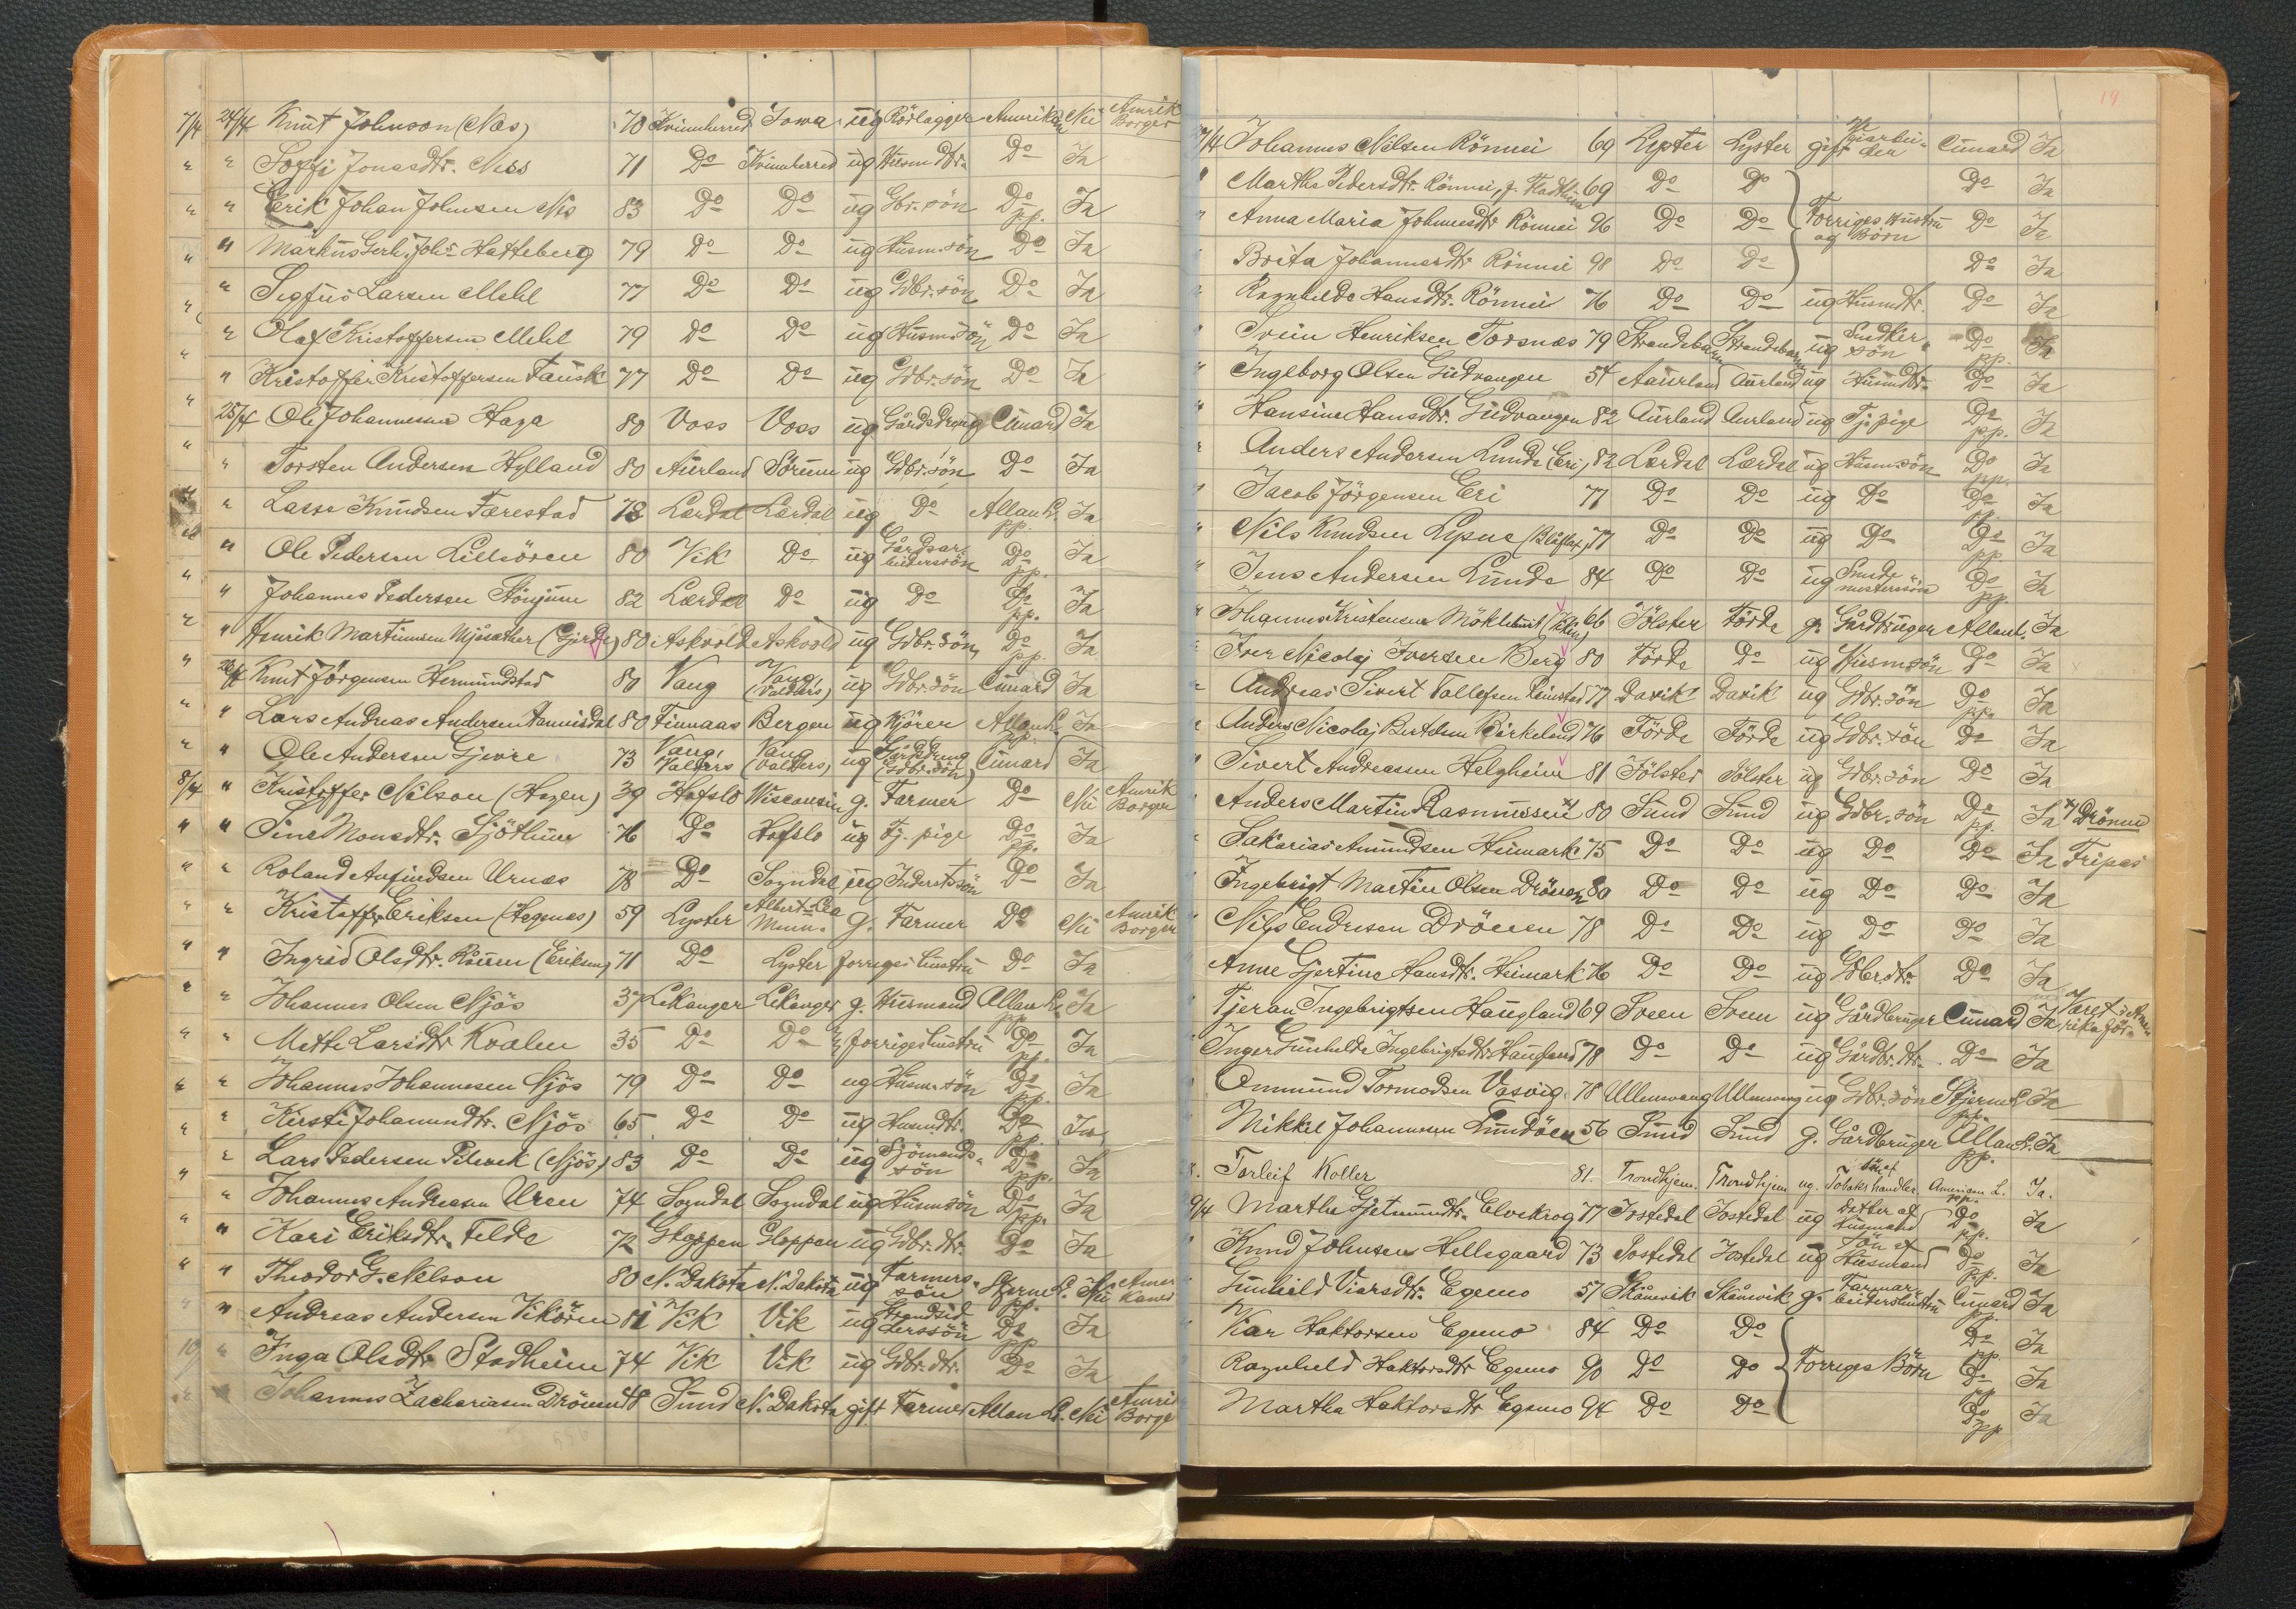 7/4 24/4 Knut Johnson (Næs) 70 Kvinnherred Iowa ug Rörlægger Amerikan Nei Amrik Borger
" " Soffi Jonasdtr. Ness 71 Do Kvinnherred ug Husm.dtr. Do Ja
" " Erik Johan Johnsen Næs 83 Do Do ug Gbr.sön Do pp. Ja
" " Markus Gerh. Johs Hatteberg 79 Do Do ug Husm.sön Do Ja
" " Sigfus Larsen Mehl 77 Do Do ug Gdbr.sön Do Ja
" " Olaf Kristoffersen Mehl 79 Do Do ug Husm.sön Do Ja
" " Kristoffer Kristoffersen Fausk 77 Do Do ug Gdbr.sön Do Ja
" 25/4 Ole Johannesen Haga 80 Voss Voss ug Gårdsdreng Cunard Ja
" " Torsten Andersen Hylland 80 Aurland Sörum ug Gdbr.sön Do Ja
" " Lasse Knudsen Færestad 78 Lærdal Lærdal ug Do Allan L. pp. Ja
" " Ole Pedersen Lillesören 80 Vik Do ug Gårdsarbeiderssön Do pp. Ja
" " Johannes Pedersen Stönjum 82 Lærdal Do ug Do Do pp. Ja
" " Henrik Martinusen Mjösæther (Gjerde) 80 Askvold Askvold ug Gdbr.sön Do pp. Ja
" 26/4 Knut Jörgensen Hermundstad 80 Vang Vang (Valders) ug Gdbr.sön Cunard Ja
" " Lars Andreas Andersen Hannisdal 80 Finnaas Bergen ug Kjörer Allan L. pp. Ja
" " Ole Andersen Gjevre 73 Vang, Valders Vang (Valders) ug Gårdsdreng (Gdbr.sön) Cunard Ja
8/4 " Kristoffer Nilson (Hagen) 39 Hafslo Wisconsin g. Farmer Do Nei Amrik Borger
" " Sine Monsdtr. Sjöthun 76 Do Hafslo ug Tj. pige Do pp. Ja
" " Roland Anfindsen Urnæs 78 Do Sogndal ug Inderstsön Do Ja
" " Kristoffer Eriksen (Hegenæs) 59 Lyster Albert-Lea Minn. g. Farmer Do Nei Amrik Borger
" " Ingrid Olsdtr. Rönnei (Eriksen) 71 Do Lyster forriges hustru Do Ja
" " Johannes Olsen Njös 37 Lekanger Lekanger g. Husmand Allan L. pp. Ja
" " Mette Larsdtr Kvalen 35 Do Do forriges hustru Do pp. Ja
" " Johannes Johannesen Njös 79 Do Do ug Husm.sön Do pp. Ja
" " Kirsti Johannesdtr. Njös 65 Do Do ug Husmdtr. Do pp. Ja
" " Lars Pedersen Pilevek (Njös) 83 Do Do ug Sjömandssön Do pp. Ja
" " Johannes Andreasen Uren 74 Sogndal Sogndal ug Husmsön Do pp. Ja
" " Kari Eriksdtr. Felde 72 Gloppen Gloppen ug Gdbr.dtr. Do Ja
" " Theodor G. Nelson 80 N. Dakota N. Dakota ug Farmerssön Stjerne L. pp. Nei Amerikaner
" " Andreas Andersen Vikören 81 Vik Vik ug Strandsidderssön Do pp. Ja
10 " Inga Olsdtr. Stadheim 74 Vik Vik ug Gdbr.dtr. Do Ja
" " Johannes Zachariasen Drönen 48 Sund N. Dakota gift Farmer Allan L. Nei Amrik Borge
19
7/4 Johannes Nilsen Rönnei 69 Lyster Lyster gift Veiarbeider Cunard Ja
" Martha Pedersdtr. Rönnei, f. Fladthein 69 Do Do Do Ja
" Anna Maria Johannesdtr Rönnei 96 Do Do Forriges hustru og Börn Do Ja
Brita Johannesdtr Rönnei 98 Do Do Do Ja
" Ragnhilde Hansdtr. Rönnei 76 Do Do ug Husmdtr. Do Ja
" Svein Henriksen Torsnæs 79 Strandebarm Strandebarm ug Snedkersön Do pp. Ja
" Ingeborg Olsen Gudvangen 54 Aaurland Aurland ug Husmdtr. Do Ja
" Hansine Hansdtr. Gudvangen 82 Aurland Aurland ug Tj. pige Do pp. Ja
" Anders Andersen Lunde (Eri) 82 Lærdal Lærdal ug Husm.sön Do pp. Ja
" Jacob Jörgensen Eri 77 Do Do ug Do Do pp. Ja
" Nils Knudsen Lysne (Blåflat) 77 Do Do ug Do Do pp. Ja
" Jens Andersen Lunde 84 Do Do ug Smedemestersön Do pp. Ja
" Johannes Kristensen Möklebust 66 Jölster Förde g. Gårdbruger Allan L. Ja
" Iver Nicolaj Iversen Berg 80 Förde Do ug Husmsön Do Ja
" Andreas Sivert Tollefsen 77 Davik Davik ug Gdbr.sön Do pp. Ja
" Anders Nicolaj Bertelsen Birkeland 76 Förde Förde ug Gdbr.sön Do Ja
" Sivert Andreassen Helgheim 81 Jölster Jölster ug Gdbr.sön Do Ja
" Anders Martin Rasmussen x) 80 Sund Sund ug Gdbr.sön Do pp. Ja x) Drönen
" Sakarias Amundsen Heimark 75 Do Do ug Do Do Ja Fripas
" Ingebrigt Martin Olsen Drönen 80 Do Do ug Do Do Ja
" Nils Endresen Drönen 78 Do Do ug Do Do Ja
" Anne Gjertine Hansdtr. Heimark 76 Do Do ug Gdbr.dtr. Do Ja
" Tjeran Ingebrigtsen Haugland 69 Sveen Sveen ug Gårdbruger Cunard Ja Været i Amerika för
" Inger Gunhilde Ingebrigtsdtr. Haugland 78 Do Do ug Gårdbr.dtr. Do Ja
" Ommund Tormodsen Vasvig 78 Ullensvang Ullensvang ug Gdbr.sön Stjerne L pp. Ja
" Mikkel Johannesen Lundöen 56 Sund Sund g. Gårdbruger Allan L. pp. Ja
8. Torleif Koller 81. Trondhjem. Trondhjem ug. sön af Tobakshandler American L. pp. Ja.
9/4 Marthe Gjetmundtr. Elvekrog 77 Jostedal Jostedal ug Datter af Husmand Do pp. Ja
" Knud Johnsen Hellegaard 73 Jostedal Jostedal ug Sön af Husmand Do pp. Ja
" Gunhild Viarsdtr. Egemo 57 Skånevik Skånevik g. Farmarbeidershustru Cunard pp. Ja
" Viar Haktorsen Egemo 84 Do Do Do pp. Ja
" Ragnhild Haktorsdtr Egemo 90 Do Do Forriges Börn Do pp Ja
" Martha Haktorsdtr Egemo 94 Do Do Do pp Ja